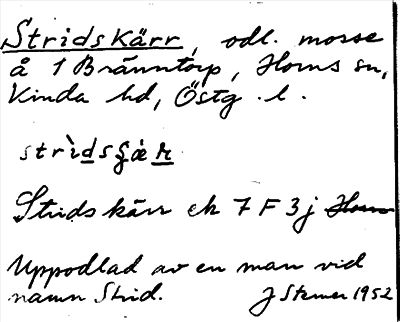 Stridskärr, odl. mosse
å 1 Bränntorp, Horns sn,
Kinda hd, Östg. l.
Stridskärr ek 7 F 3j Horns
Uppodlad av en man vid
namn Strid. J Stemer 1952